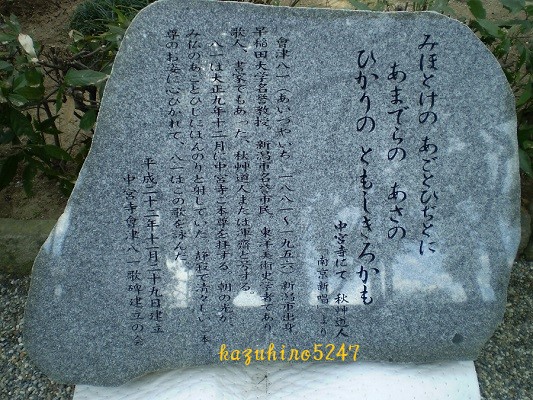 みほとけの あごとひぢとに
あまでらの あさの
ひかりの ともしきろかも
中宮寺にて 秋艸道人
「南京新唱」より
會津八一(あいづやいち、一八八一～一九五六)新潟市出身
早稲田大学名誉教授、新潟市名誉市民、東洋美術史学者であり、
歌人、書家でもあった。秋艸道人または渾齋と号する。
八一は大正九年十二月に中宮寺ご本尊を拝する。朝の光が
み仏のあごとひじにほんのりと射していた。静寂で清々しい本
尊のお姿に心ひかれて、八一はこの歌を詠んだ。
平成二十二年十一月二十九日建立
中宮寺會津八一歌碑建立の会
kazuhino5247